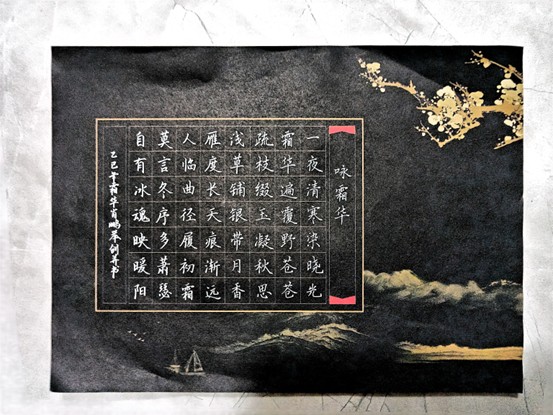 咏霜华
一夜清寒染晓光
霜华遍覆野苍苍
疏枝缀玉凝秋思
浅草铺银带月香
雁度长天痕渐远
人临曲径履初霜
莫言冬序多萧瑟
自有冰魂映暖阳
乙巳年霜华肖鹏举创并书